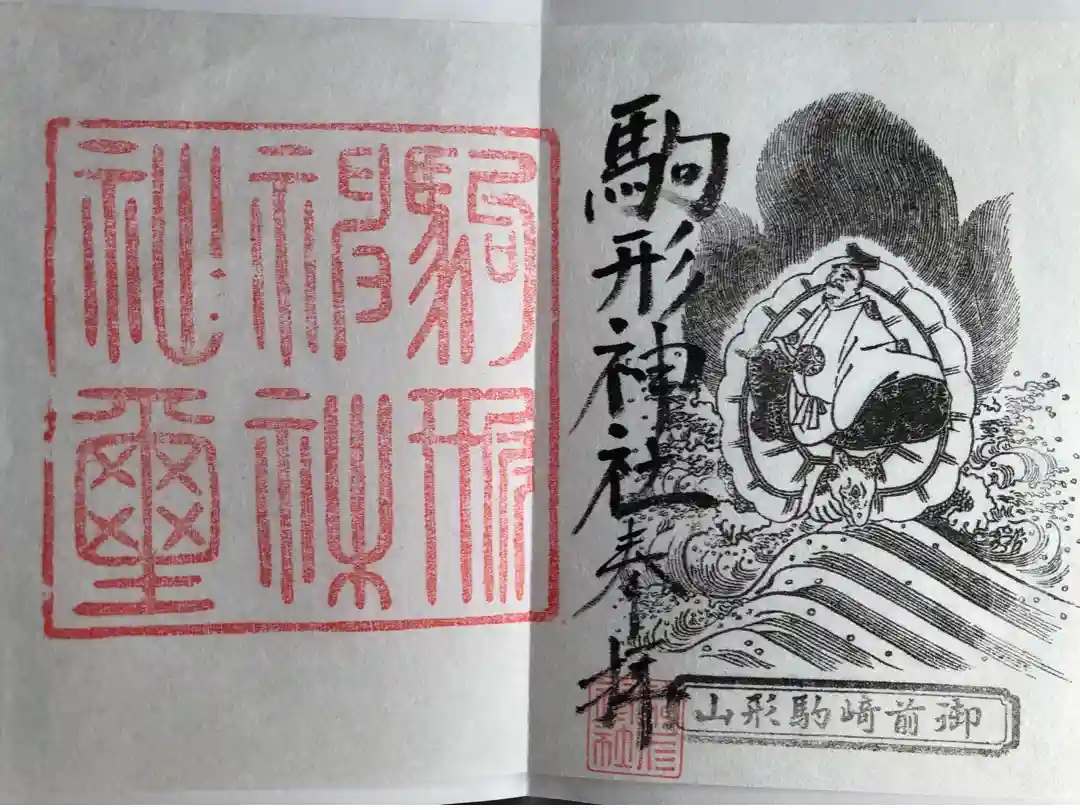 駒形神社奉拝
御前﨑駒形山
駒形
神社
璽